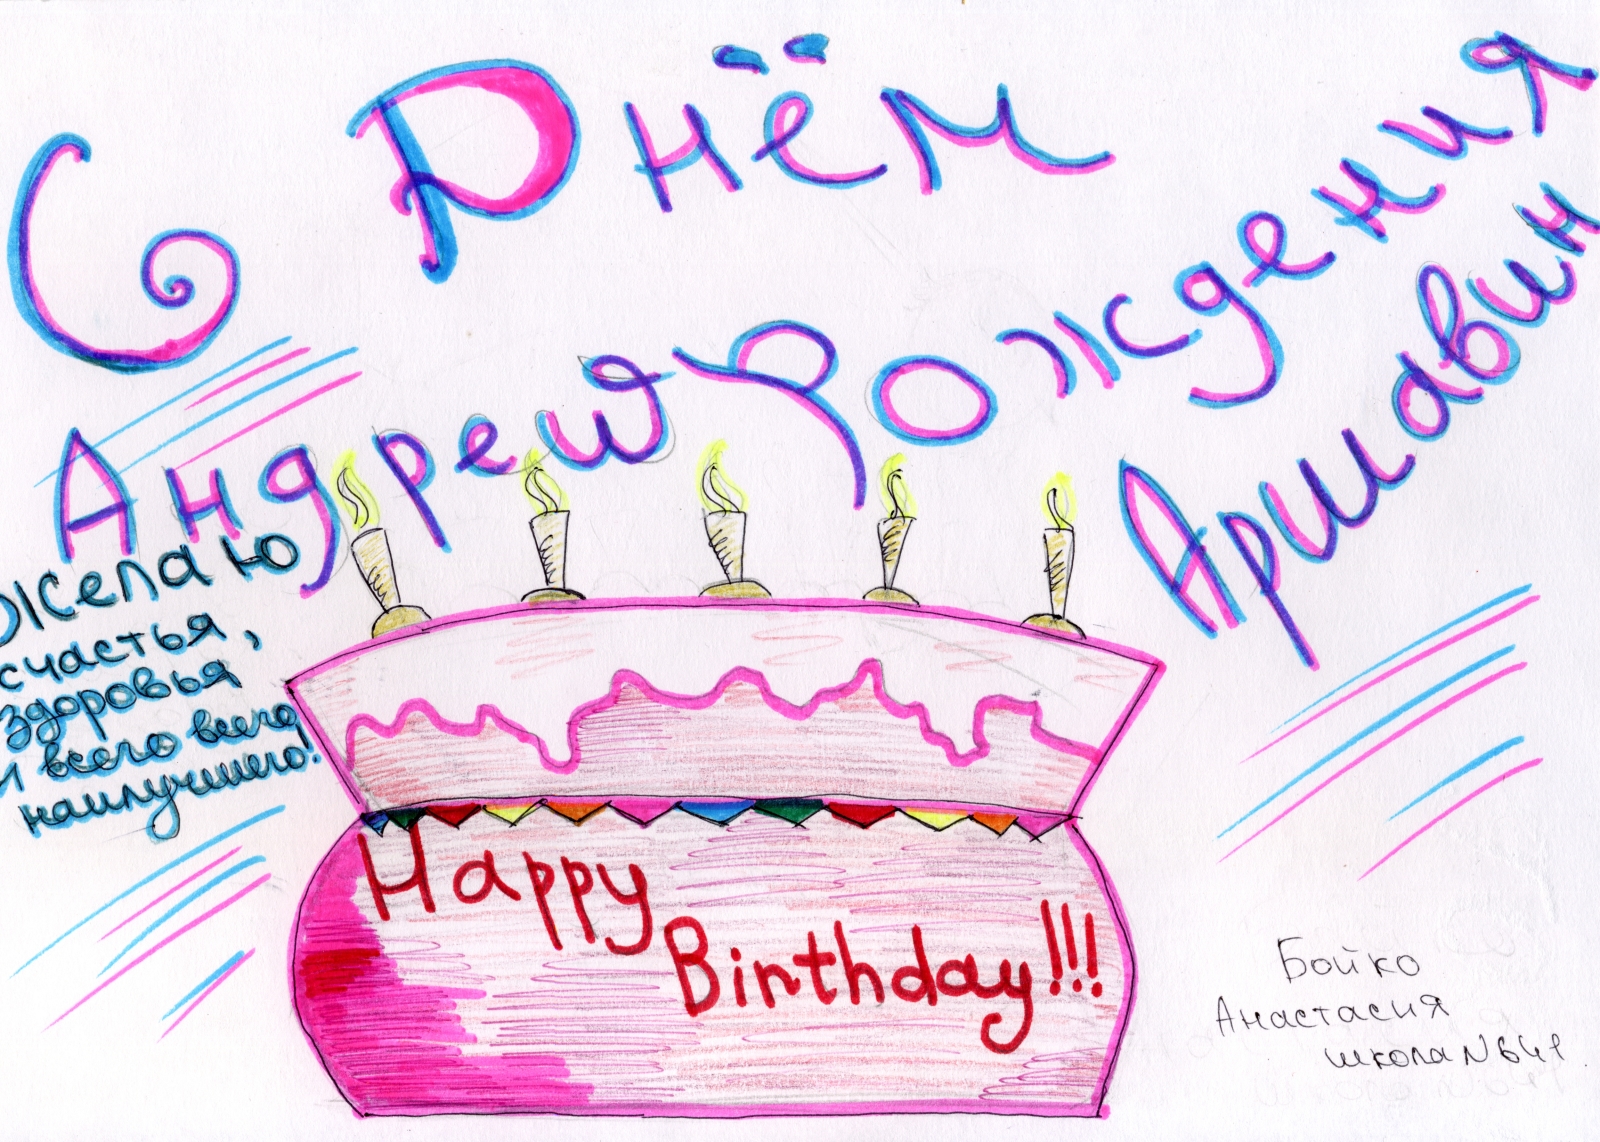 С Днём
Рождения
Андрей
Аршавин
Желаю
счастья,
здоровья
и всего всего
наилучшего!
Happy
Birthday!!!
Бойко
Анастасия
школа №641